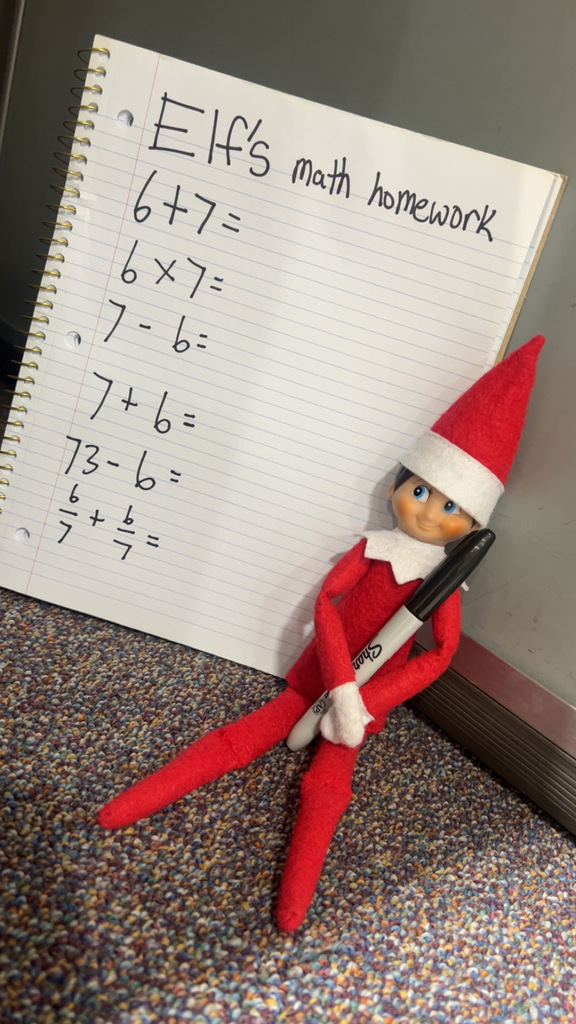 Elf's math homework
6+7=
6×7=
7-6=
7+6=
73-6=
6/7 + 6/7 =